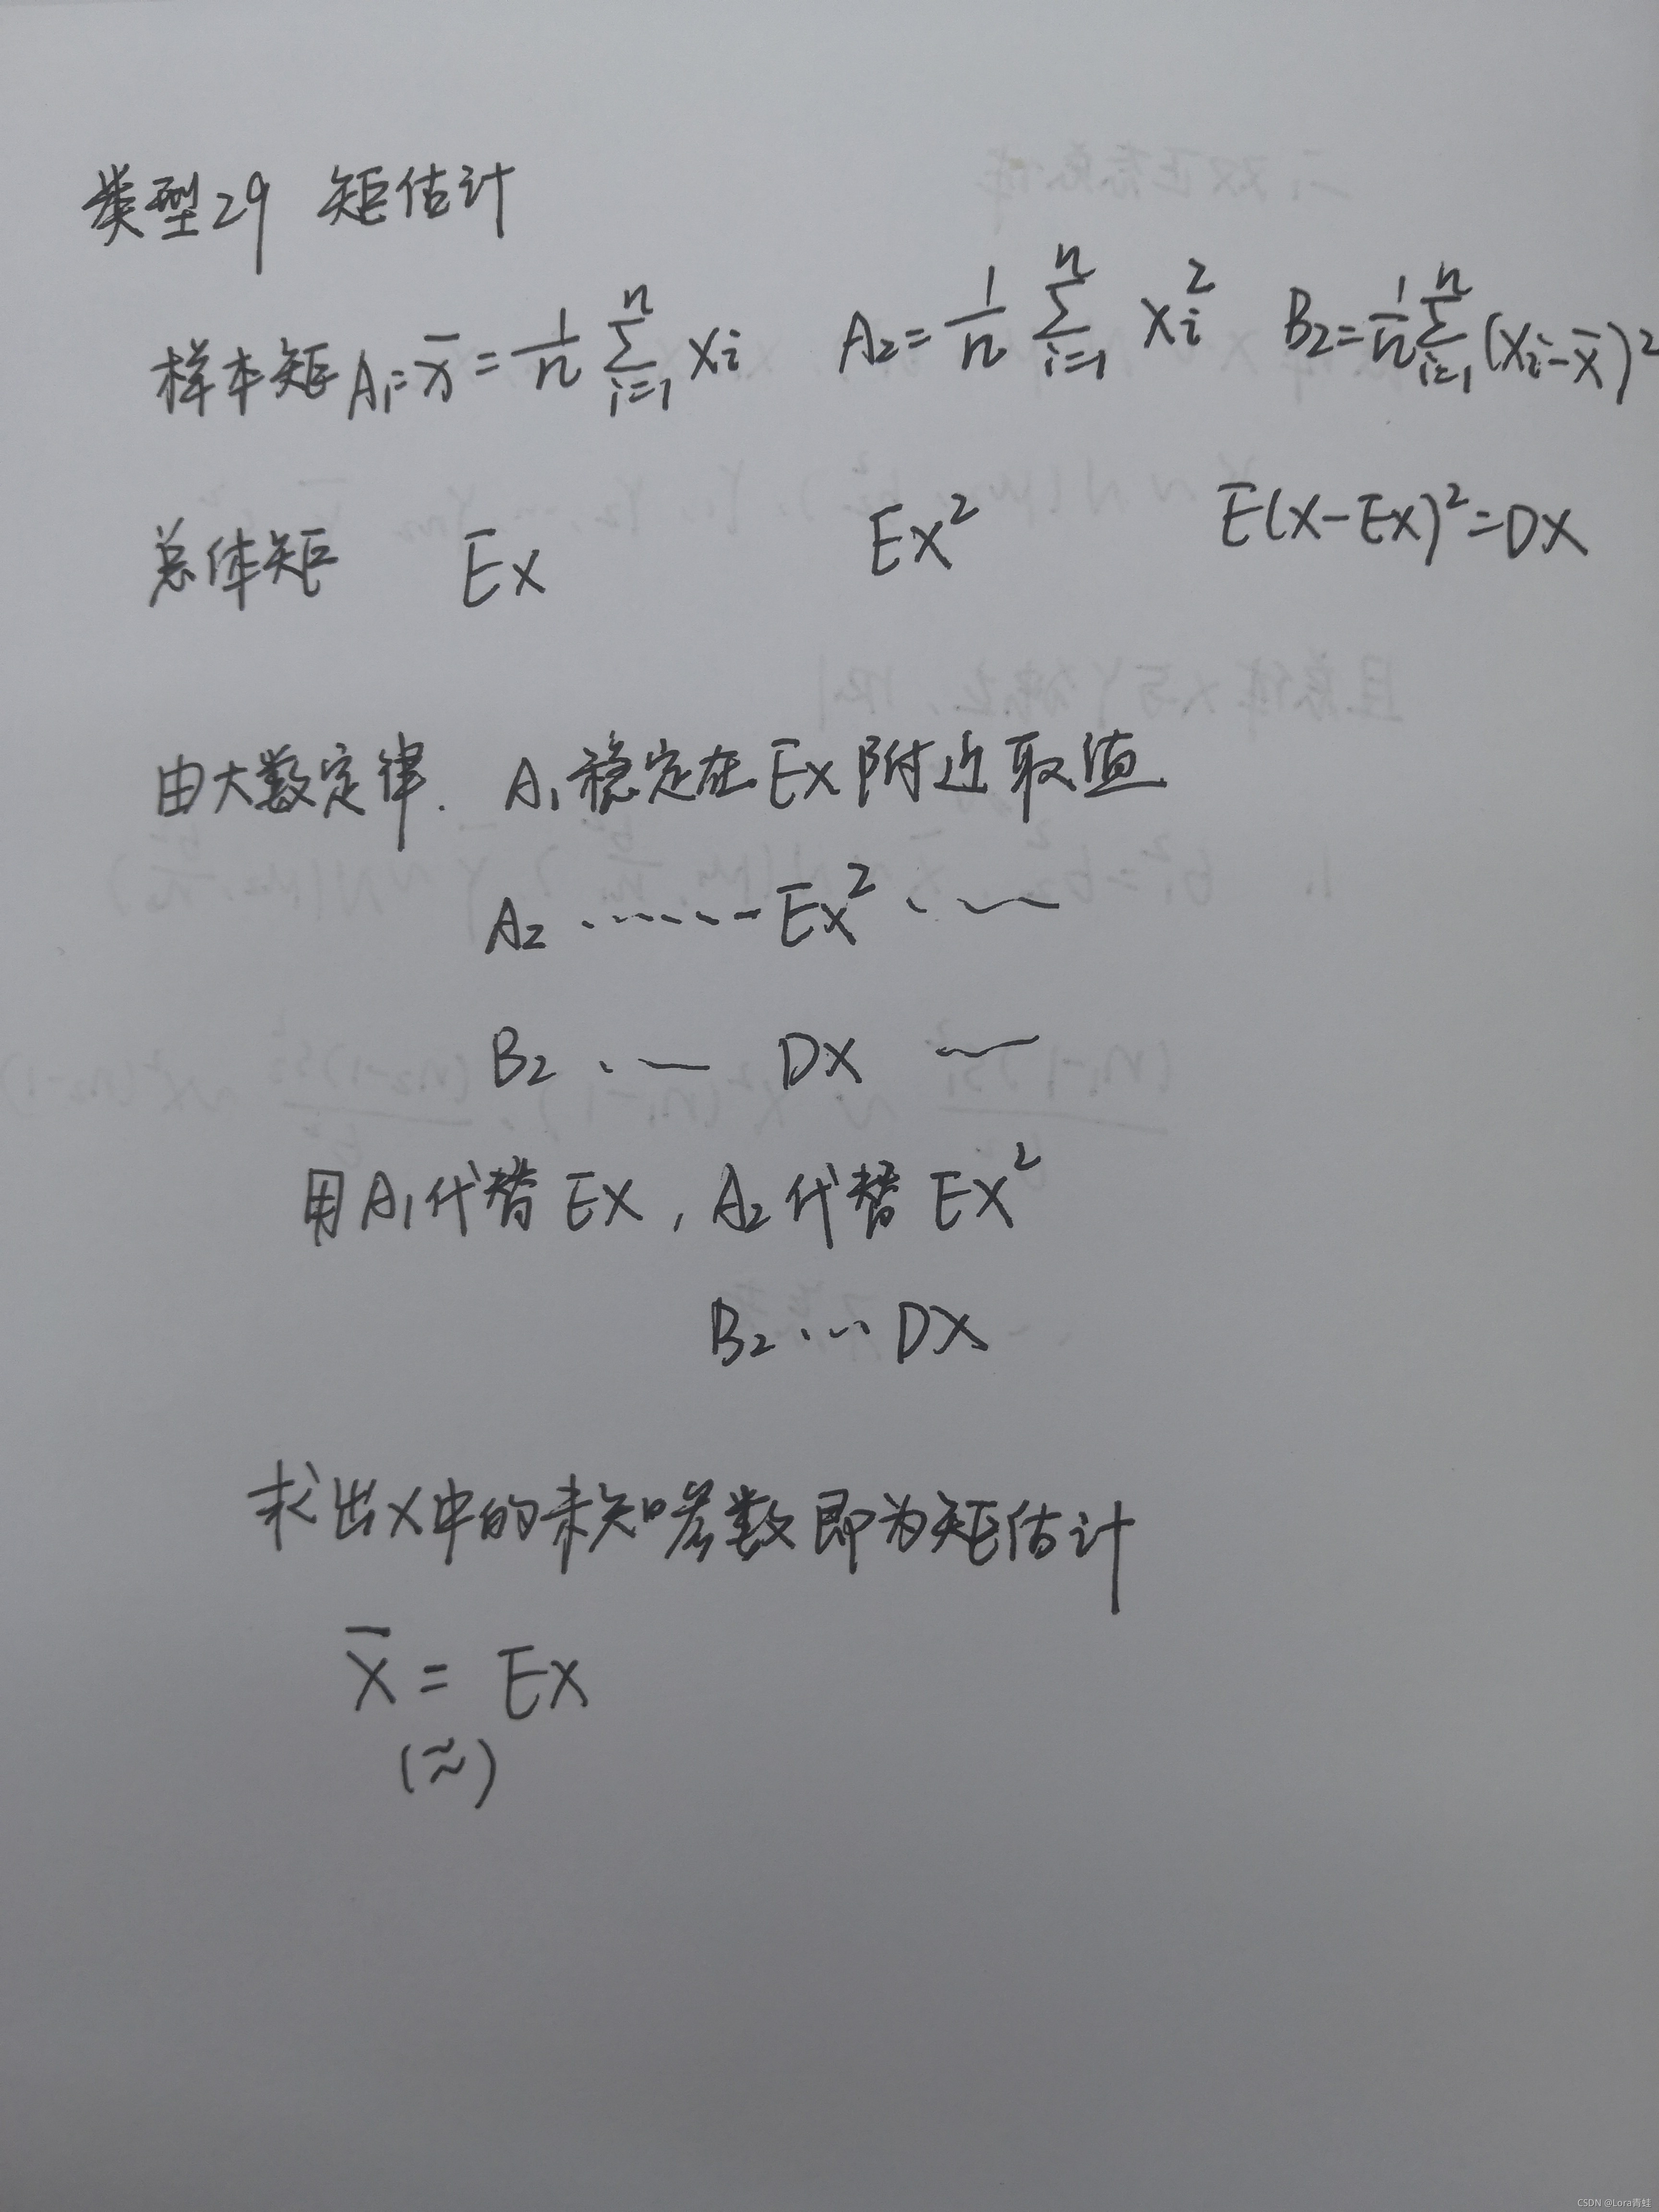 类型29 矩估计
样本矩 A₁=x̄=1/n ∑ᵢ₌₁ⁿ Xᵢ A₂=1/n ∑ᵢ₌₁ⁿ Xᵢ² B₂=1/n ∑ᵢ₌₁ⁿ (Xᵢ-X̄)²
总体矩 EX EX² E(X-EX)²=DX
由大数定律. A₁稳定在EX附近取值
A₂ ······ EX² ···
B₂ ··· DX ···
用A₁代替EX, A₂代替EX²
B₂ ··· DX
求出X中的未知参数即为矩估计
X̄ = EX
(≈)
CSDN @Lora青蛙